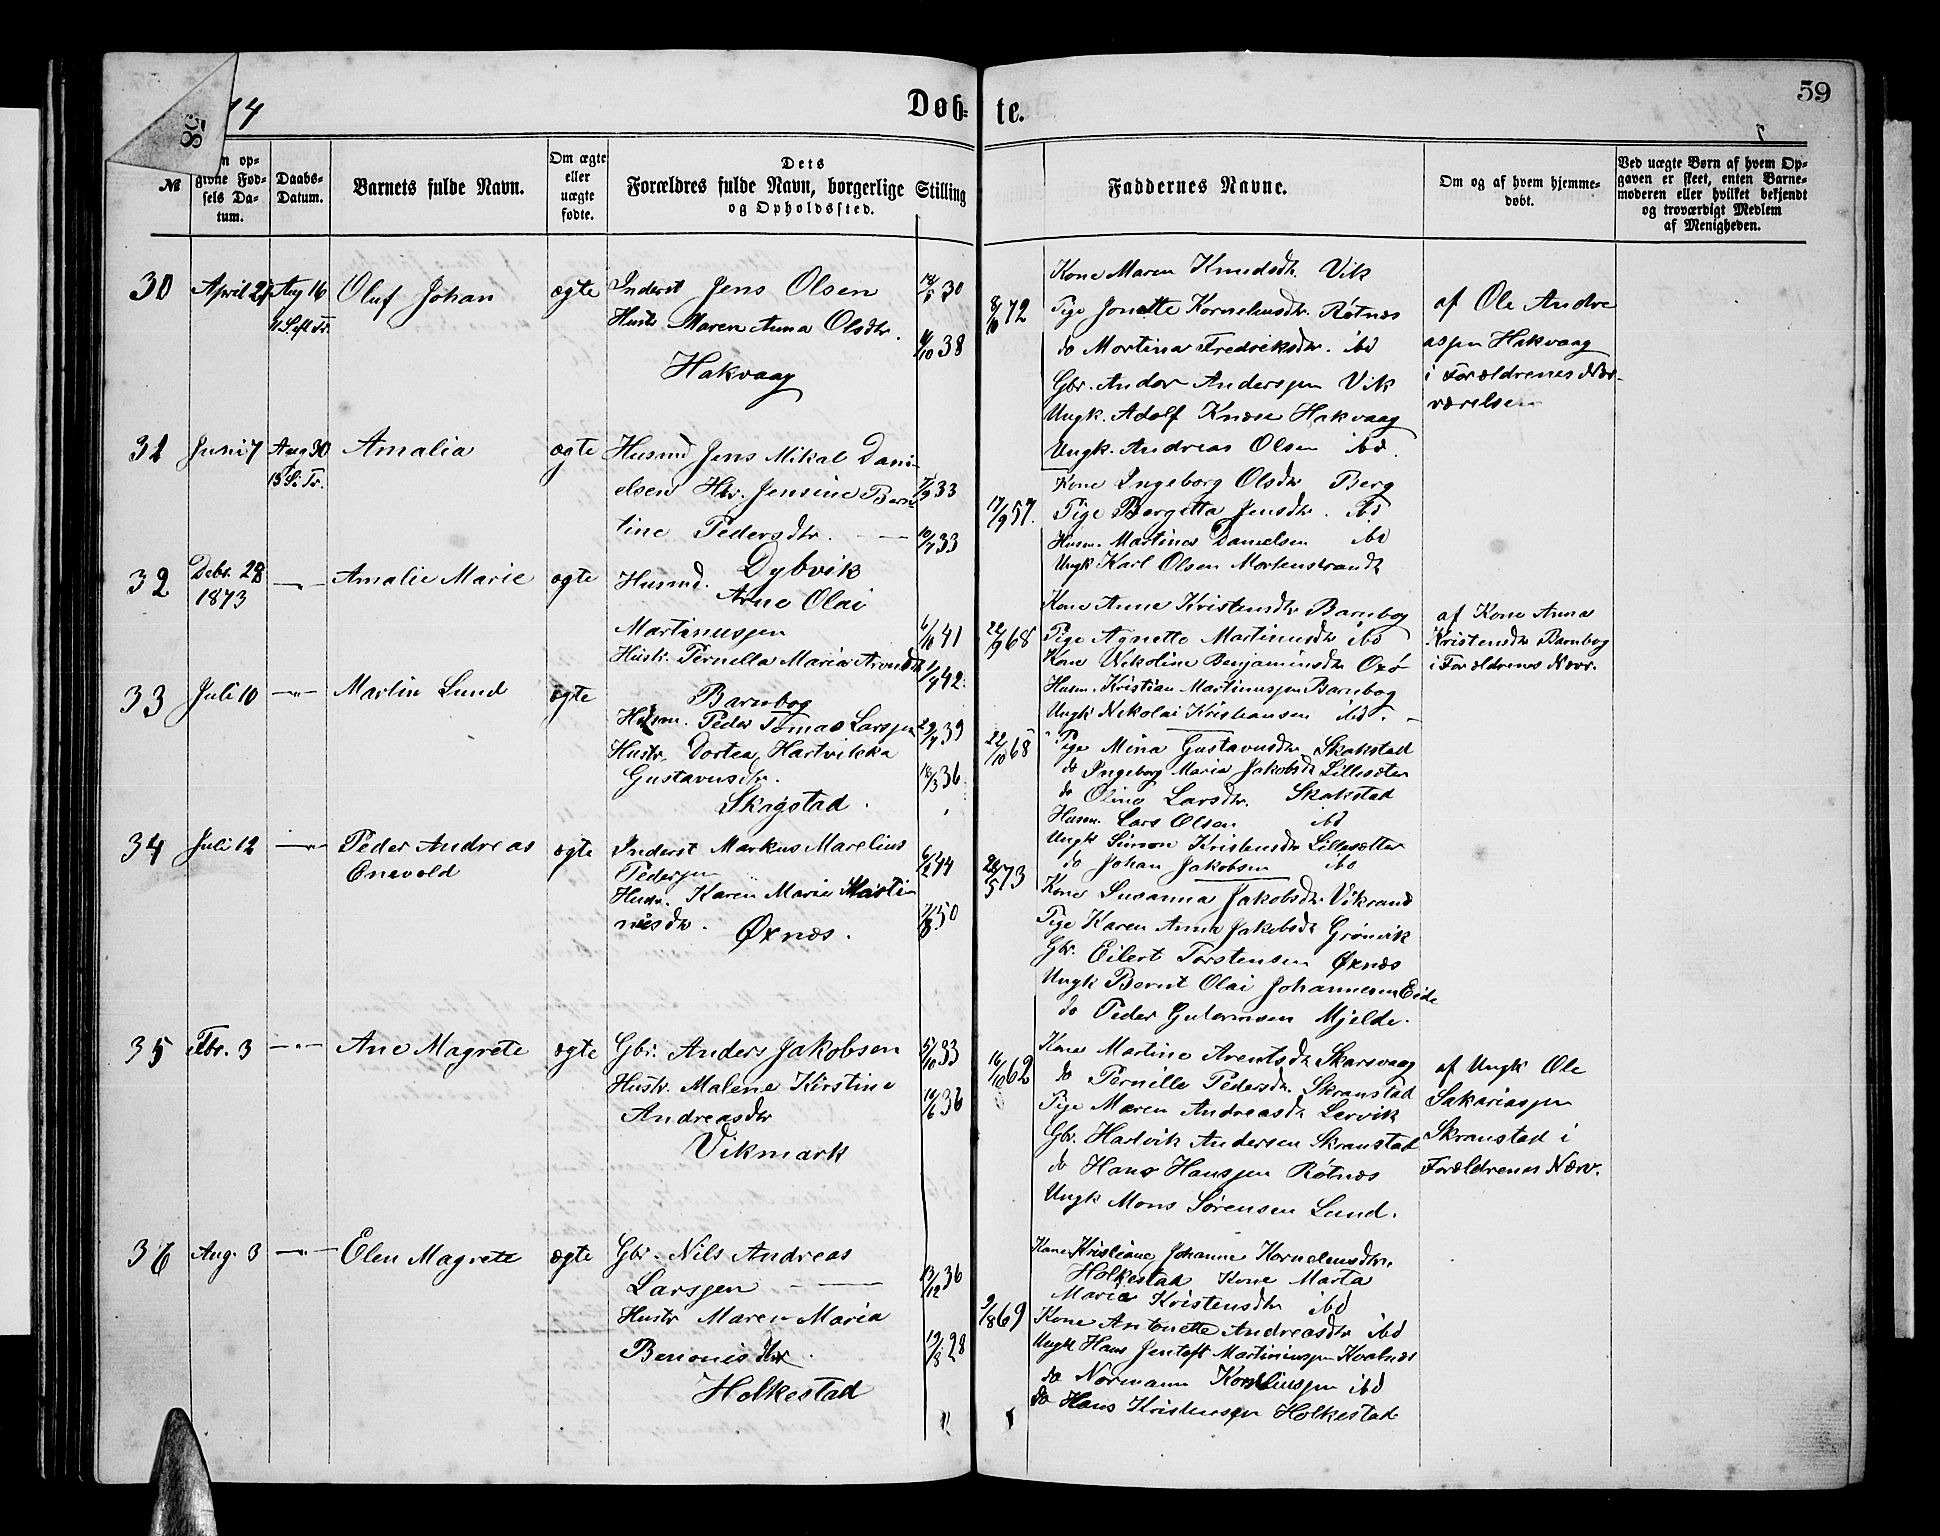 59
58
14
Døb- te.
№
n op-
givne Fød-
sels Da-
tum.
Daabs-
Datum.
Barnets fulde Navn.
Om ægte
eller
uægte
fødte.
Dets
Forældres fulde Navn, borgerlige Stilling
og Opholdssted.
Faddernes Navne.
Om og af hvem hjemme-
døbt.
Ved uægte Børn af hvem Op-
gaven er skeet, enten Barne-
moderen eller hvilket bekjendt
og troværdigt Medlem
af Menigheden.
30 April 21 Aug 16 Oluf Johan ægte Inderst Jens Olsen
11 S eft Tr.
Hustr Maren Anna Olsdtr.
10 38
Hakvaag
8/10 72
Kone Maren Knudsdtr. Vik
Pige Jonette Korneliusdtr. Røtnæs
do Martina Fredriksdtr. ibd
Gbr. Andor Anderssen Vik
Ungk. Adolf Knæse Hakvaag
Ungk. Andreas Olsen ibd.
af Ole Andre
assen Hakvaag
i Forældrenes Nær-
værelsen
31 Juni 7 Aug 30 Amalia ægte Husmd Jens Mikal Dani
13 S. Tr.
elsen Hr. Jensine Bern
9 33
tine Pedersdtr.
10/7 33
Dybvik
17/9 57.
Kone Ingeborg Olsdtr Berg
Pige Bergitta Jensdtr. ibd
Husm. Martines Danielsen ibd
Ungk Karl Olsen Mortenstrandt
32 Debr. 28 Amalie Marie ægte Husmd. Arne Olai
1873
Martinussen
6/10 41
Hustr. Pernella Maria Arntsdtr
9 42.
Barnbog
22/9 68
Kone Anne Kristensdtr Barnbog
Pige Agnette Martinusdtr ibd
Kone Nikoline Benjaminsdtr Oxø
Husm. Kristian Martinussen Barnbog
Ungk Nikolai Kristiansen ibd.
af Kone Anna
Kristensdtr Barnbog
i Forældrens Nærv.
33 Juli 10 Martin Lund ægte
Husm. Peder Tomas Larssen
29/7 39
Hustr. Dortea Hartvikka
Gustavusdtr.
18/3 36.
Skagstad.
22/10 68
Pige Mina Gustavusdtr. Skakstad
do Ingeborg Maria Jakobsdtr Lillesæter
do Olina Larsdtr. Skakstad
Husm. Lars Olsen ibd
Ungk Simon Kristensdtr Lillesætter
do Johan Jakobsen ibd
34 Juli 12 Peder Andreas ægte Inderst Markus Marelius
Enevold
6/2 44
Pederssen
Hustr. Karen Marie Marti
nusdtr.
8 50
Øxnæs.
22/5 73
Kone Susanna Jakobsdtr Vikrand
Pige Karen Anna Jakobsdtr Grönvik
Gbr. Eilert Torstensen Øxnæs
Ungk Bernt Olai Johannesen Eide
do Peder Gutormsen Mjelde.
35 Fbr. 3 Ane Magrete ægte Gbr. Anders Jakobsen
10 33
Hustr. Malene Kirstine
10/6 36
Andreasdtr
Vikmark
16/10 62
Kone Martine Arentsdtr Skarsvaag
do Pernille Pedersdtr. Skranstad
Pige Maren Andreasdtr Lervik
Gbr. Hartvik Andersen Skranstad
do Hans Hanssen Røtnæs
Ungk Mons Sørensen Lund.
af Ungk Ole
Sakariassen
Skranstad i
Forældrenes Nærv.
36 Aug. 3 Elen Magrete ægte Gbr. Nils Andreas
Larssen
13/12 36
Hustr Maren Maria
Benonisdtr.
19/3 28
Holkestad
9/8 69
Kone Kristiane Johanne Kornelensdtr.
Holkestad Kone Marta
Marie Kristensdtr ibd
Kone Antonette Andreasdtr ibd
Ungk Hans Jentoft Martinussen Kvalnæs
do Normann Korneliussen ibd
do Hans Kristensen Holkestad